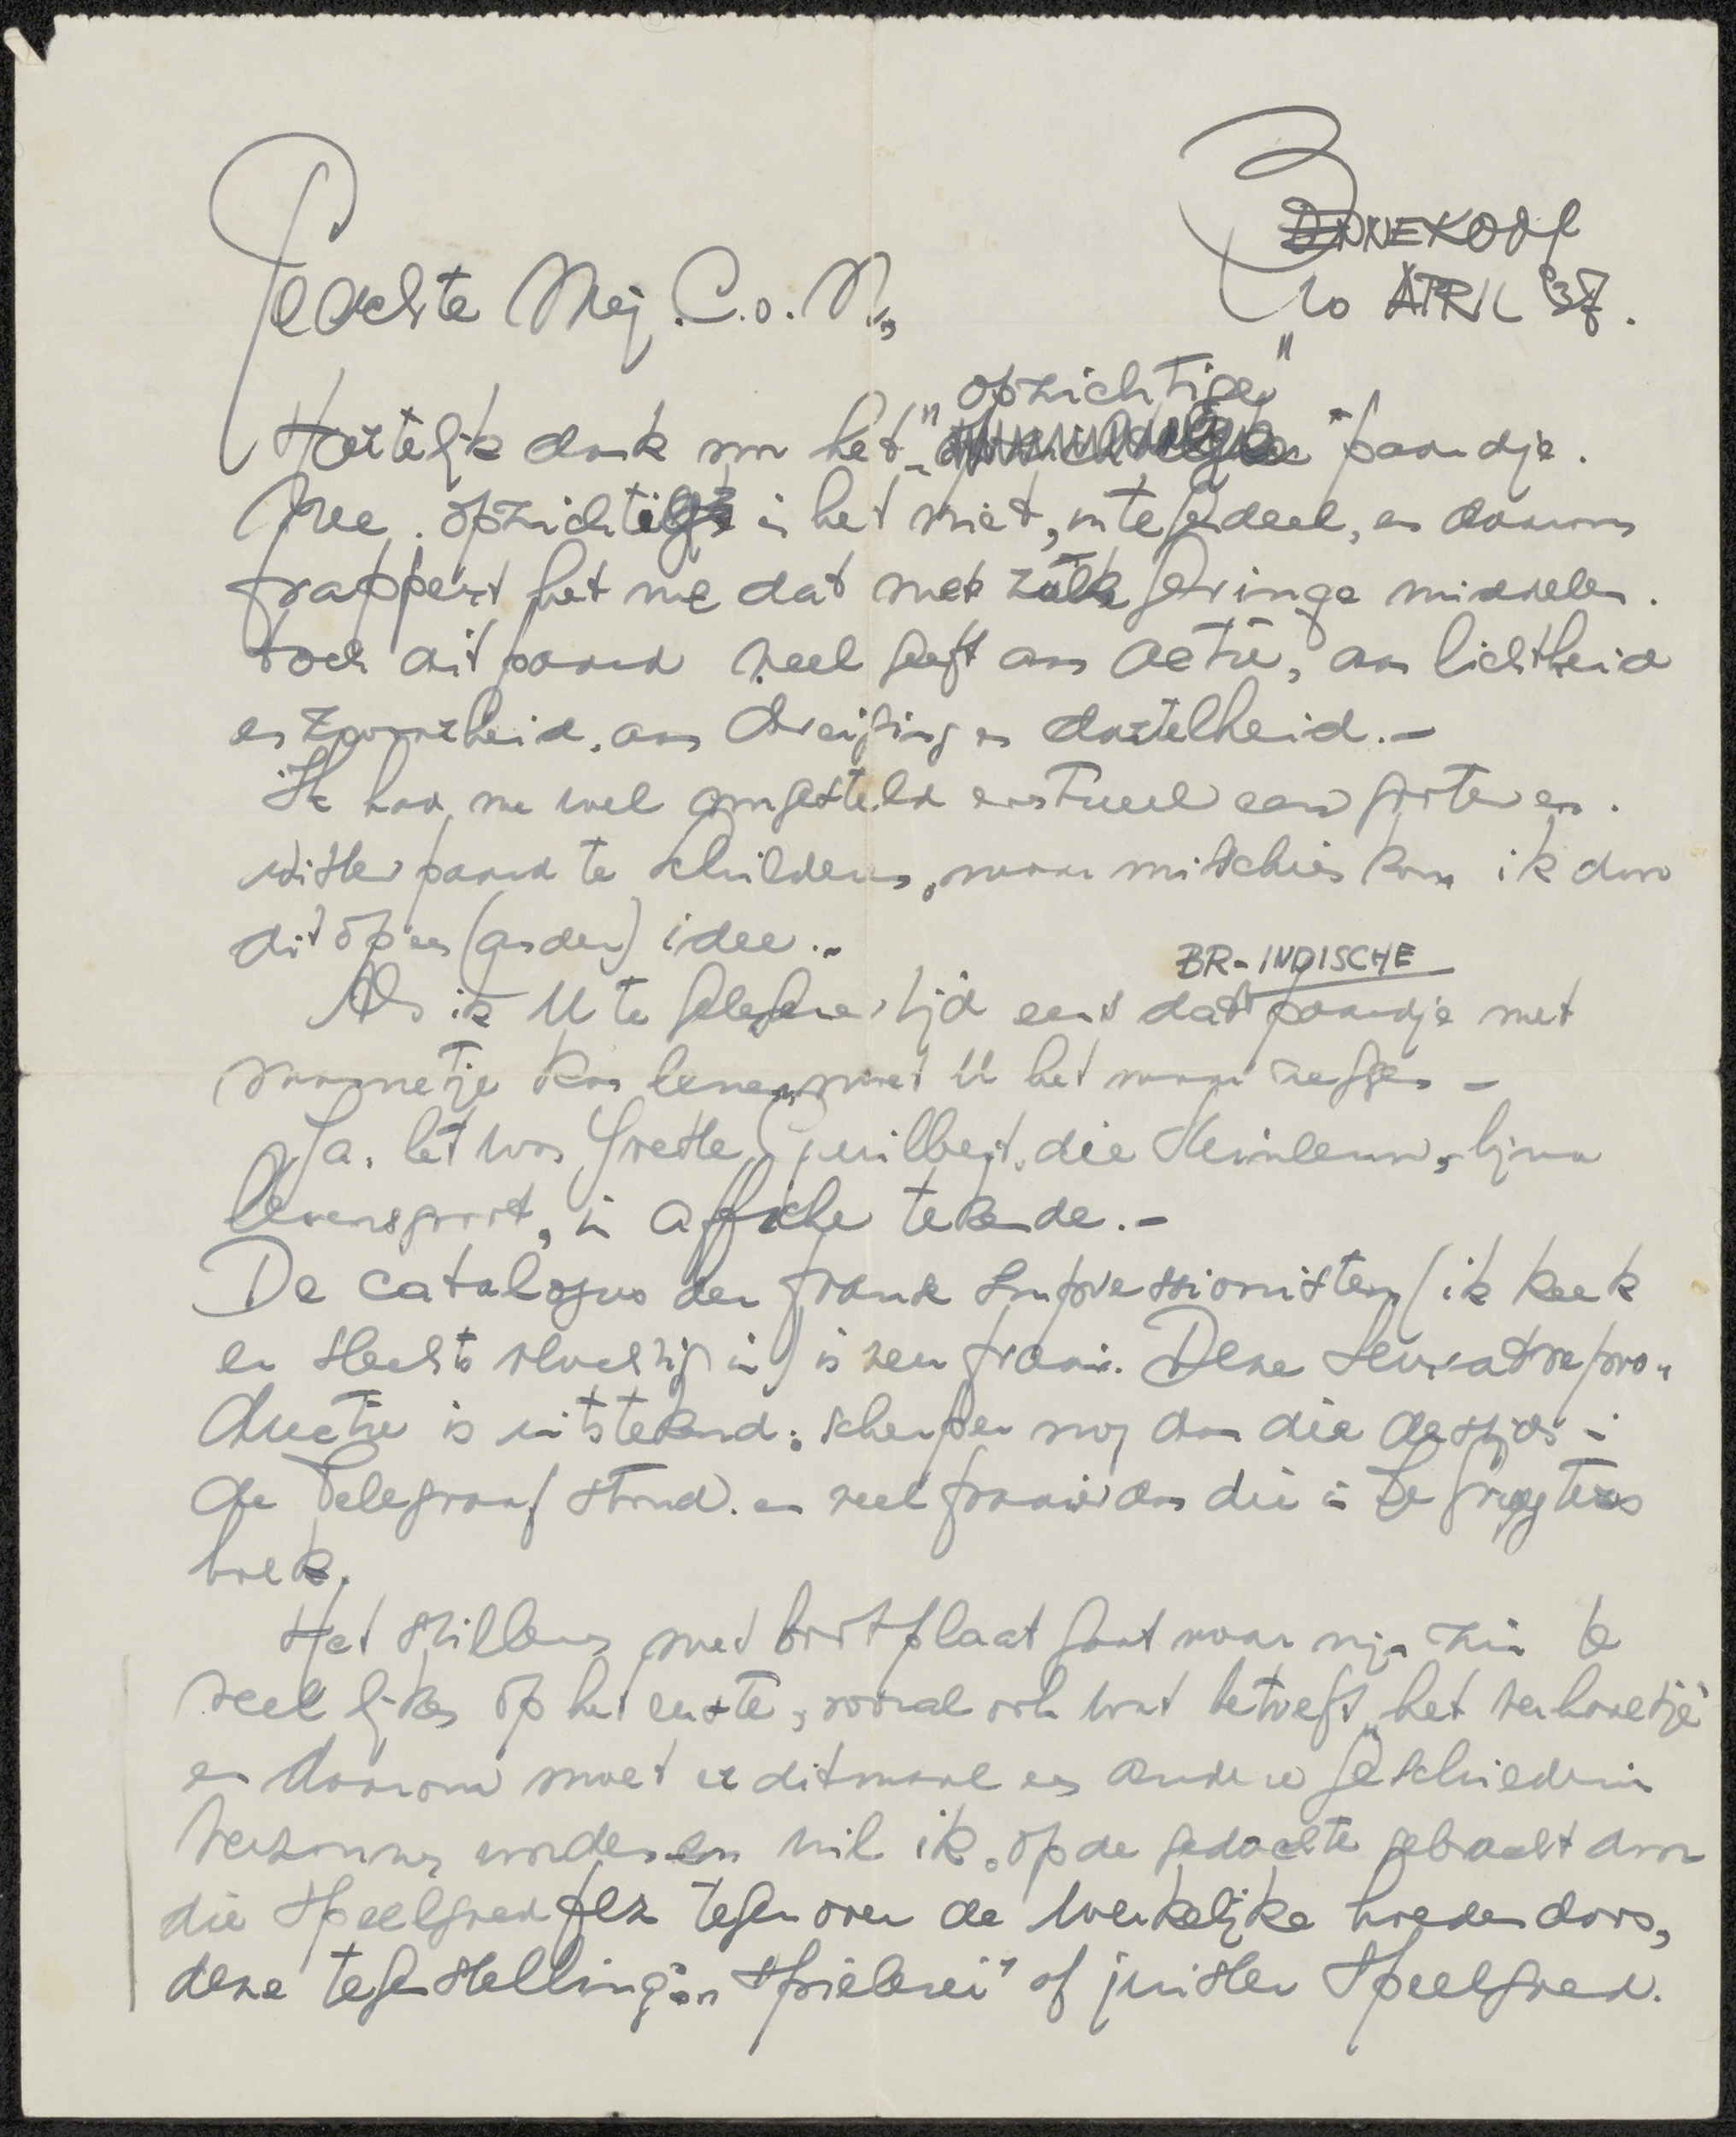 BENNEKOM
10 APRIL '37.
Geachte Mej. C.v.N.,
opzichtige"
Hartelijk dank voor het " paardje.
Nee. opzichtig is het niet, integendeel, en daarom
frappeert het me dat met zulke geringe middelen
toch dit paard veel geeft aan actie, aan lichtheid
en zwaarheid, aan dreiging en dartelheid.-
Ik had me wel voorgesteld eventueel een groter en
witter paard te schilderen, maar misschien kom ik door
dit op een (ander) idee.-
BR-INDISCHE
Als ik U te gelegener tijd eens dat paardje met
mannetje kan lenen, moet U het maar zeggen -
Ja, het was Yvette Guilbert, die Steinlen, bijna
levensgroot, in affiche tekende.-
De catalogus der franse Impressionisten (ik keek
er slechts vluchtig in) is zeer fraai. Deze Seuratrepro-
ductie is uitstekend: scherper nog dan die destijds in
de Telegraaf stond. en veel fraaier dan die in De Gruyters
boek.
Het stilleven met bordplaat gaat naar mijn zin te
veel lijken op het eerste, vooral ook wat betreft "het verhaaltje"
en daarom moet er ditmaal een andere geschiedenis
verzonnen worden en wil ik, op de gedachte gebracht door
die Speelgoed fez tegenover de werkelijke hoededoos,
deze tegenstelling in "Spielerei" of juister Speelgoed.